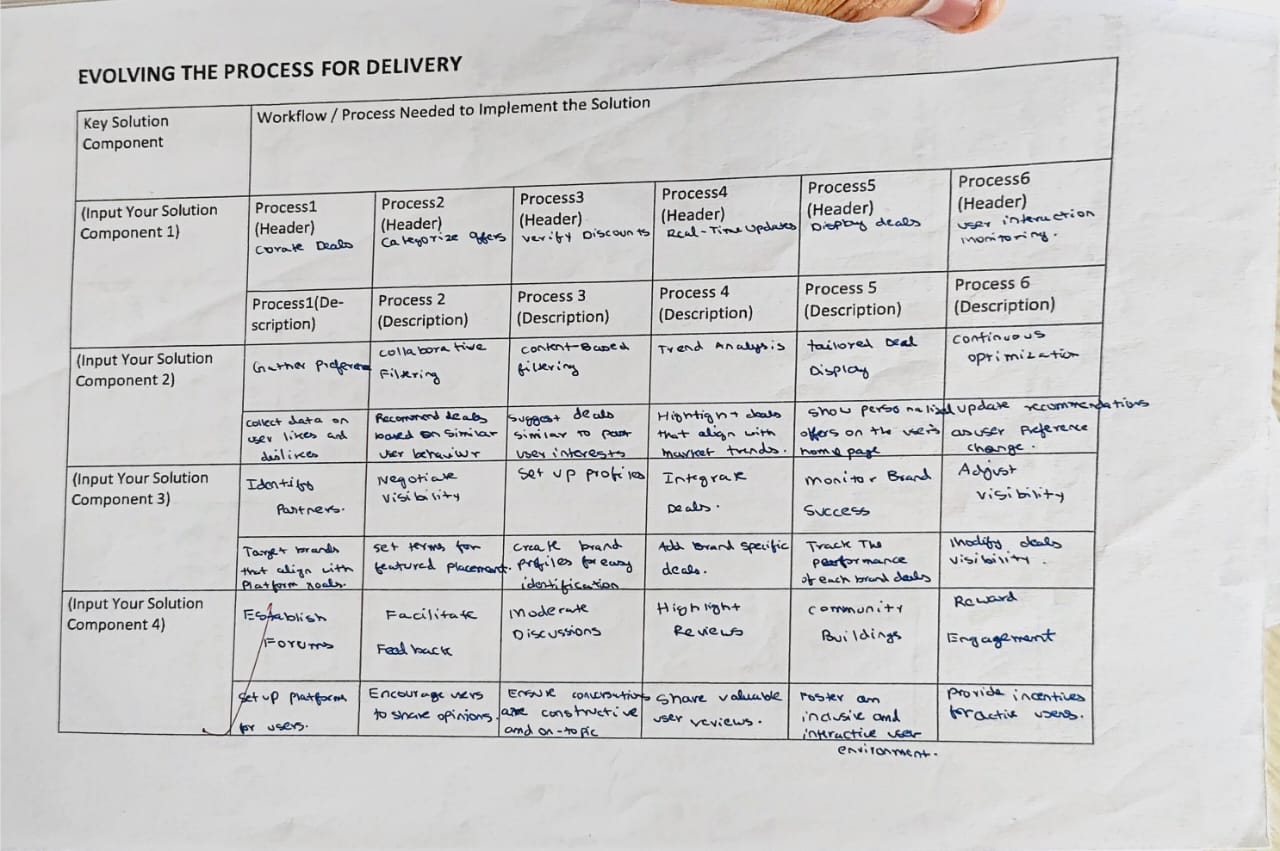 EVOLVING THE PROCESS FOR DELIVERY
Key Solution
Component
Workflow / Process Needed to Implement the Solution
(Input Your Solution
Component 1)
Process1
(Header)
Corate Deals
Process2
(Header)
Categorize offers
Process3
(Header)
verify Discounts
Process4
(Header)
Real-Time Updates
Process5
(Header)
Display deals
Process6
(Header)
user interaction
monitoring.
Process1(De-
scription)
Process 2
(Description)
Process 3
(Description)
Process 4
(Description)
Process 5
(Description)
Process 6
(Description)
(Input Your Solution
Component 2)
Gather Preferene
collaborative
Filtering
content-Based
filtering
Trend Analysis
tailored Deal
Display
continuous
optimization
collect data on
user likes and
dislikes
Recommend deals
based on similar
user behaviour
suggest deals
similar to past
user interests
Hightight deals
that align with
market trends.
show personalized
offers on the users
home page
update recommendations
as user Preference
change.
(Input Your Solution
Component 3)
Identify
Partners.
Negotiate
visibility
Set up profiles
Integrate
Deals.
monitor Brand
Success
Adjust
visibility
Target brands
that align with
Platform goals.
set terms for
featured placement.
create brand
profiles for easy
identification
Add brand specific
deals.
Track The
performance
of each brand deals
modify deals
visibility.
(Input Your Solution
Component 4)
Establish
Forums
Facilitate
Feedback
Moderate
Discussions
Highlight
Reviews
community
Buildings
Reward
Engagement
set up platforms
for users.
Encourage users
to share opinions.
Ensure conversations
are constructive
and on-topic
share valuable
user reviews.
Foster an
inclusive and
interactive user
environment.
provide incentives
for active users.